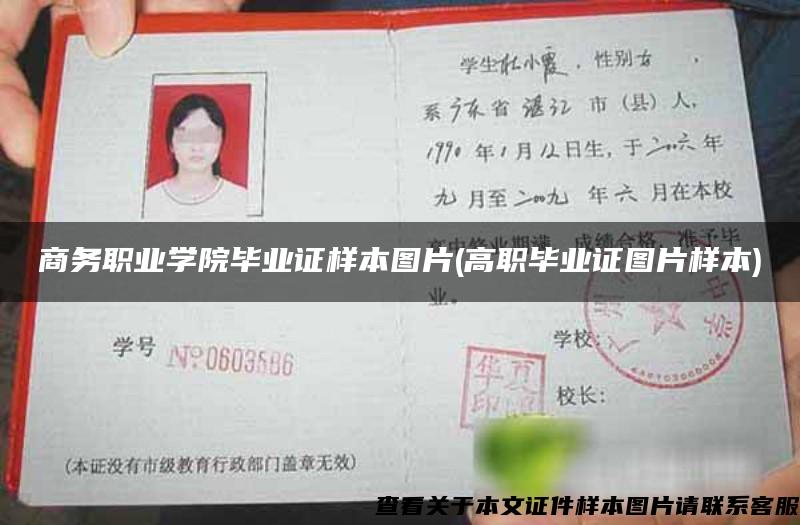 学生杜小霞，性别女，
系广东省湛江市（县）人，
1990年1月12日生，于二〇〇六年
九月至二〇〇九年六月在本校
高中毕业期满，成绩合格，准予毕
业。
商务职业学院毕业证样本图片(高职毕业证图片样本)
学号 No0603586
学校：
校长：
(本证没有市级教育行政部门盖章无效)
查看关于本文证件样本图片请联系客服